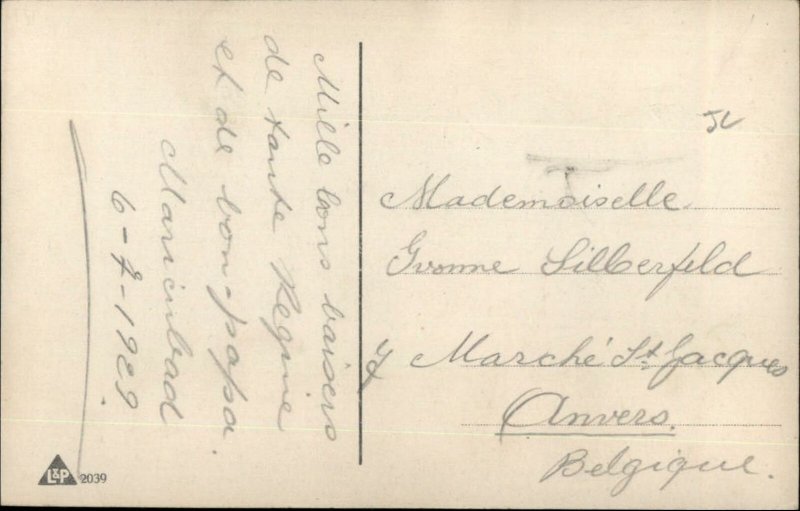 Mille bons baisers
de tante Regine
et de bon-papa.
Marienbad
6-7-1929
Mademoiselle
Yvonne Silberfeld
Marché St Jacques
Anvers.
Belgique.
L&P 2039